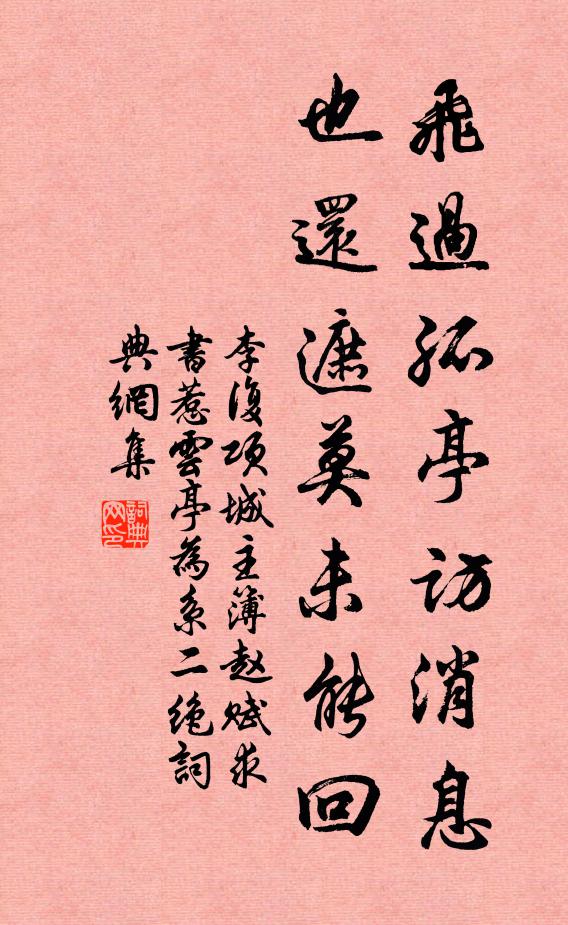 飛過孤亭訪消息
也還遮莫未能回
李復項城主簿赵赋求
書惹雲亭為系二绝詞
典網集
詞典網印